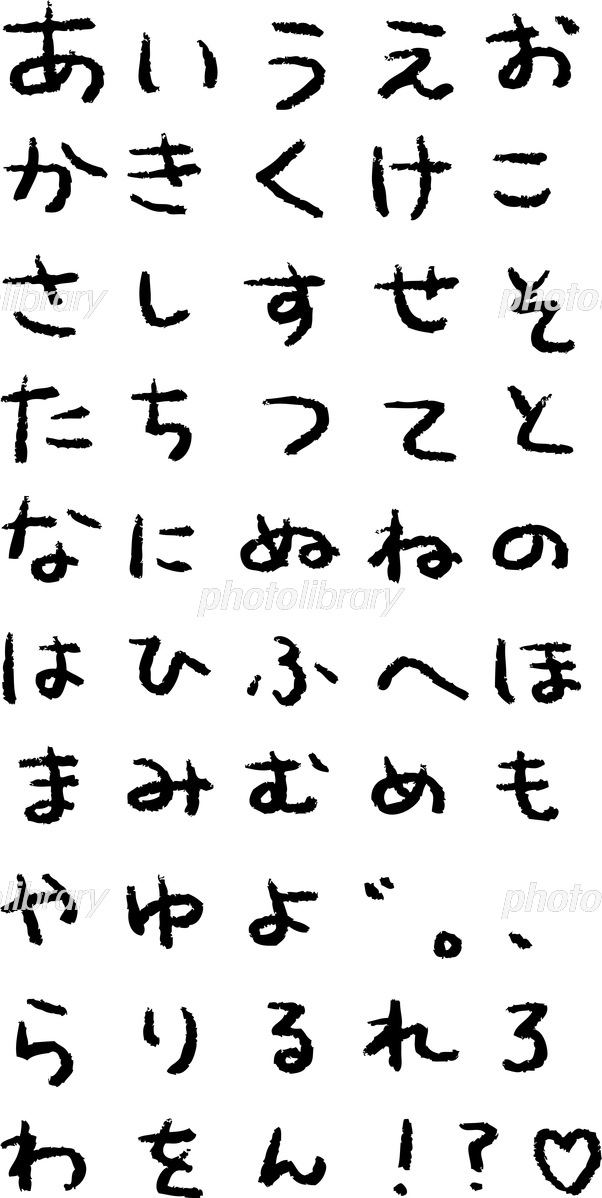 あいうえお
かきくけこ
さしすせそ
photolibrary
たちつてと
なにぬねの
photolibrary
はひふへほ
まみむめも
やゆよ゛。、
photolibrary
らりるれろ
わをん!?♡